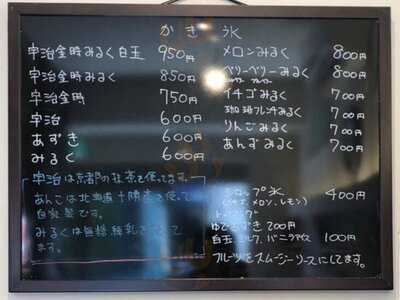 かき氷
宇治金時みるく白玉 950円
宇治金時みるく 850円
宇治金時 750円
宇治 600円
あずき 600円
みるく 600円
宇治は京都の抹茶を使ってます。
あんこは北海道十勝産を使って
自家製です。
みるくは無糖練乳を
ます。
メロンみるく 800円
ベリーベリーみるく 800円
イチゴみるく 700円
珈琲フレンチみるく 700円
りんごみるく 700円
あんずみるく 700円
シロップ氷 400円
(イチゴ、メロン、レモン)
トッピング
ゆであずき 200円
白玉、ミルク、バニラアイス 100円
フルーツをスムージーソースにしてます。